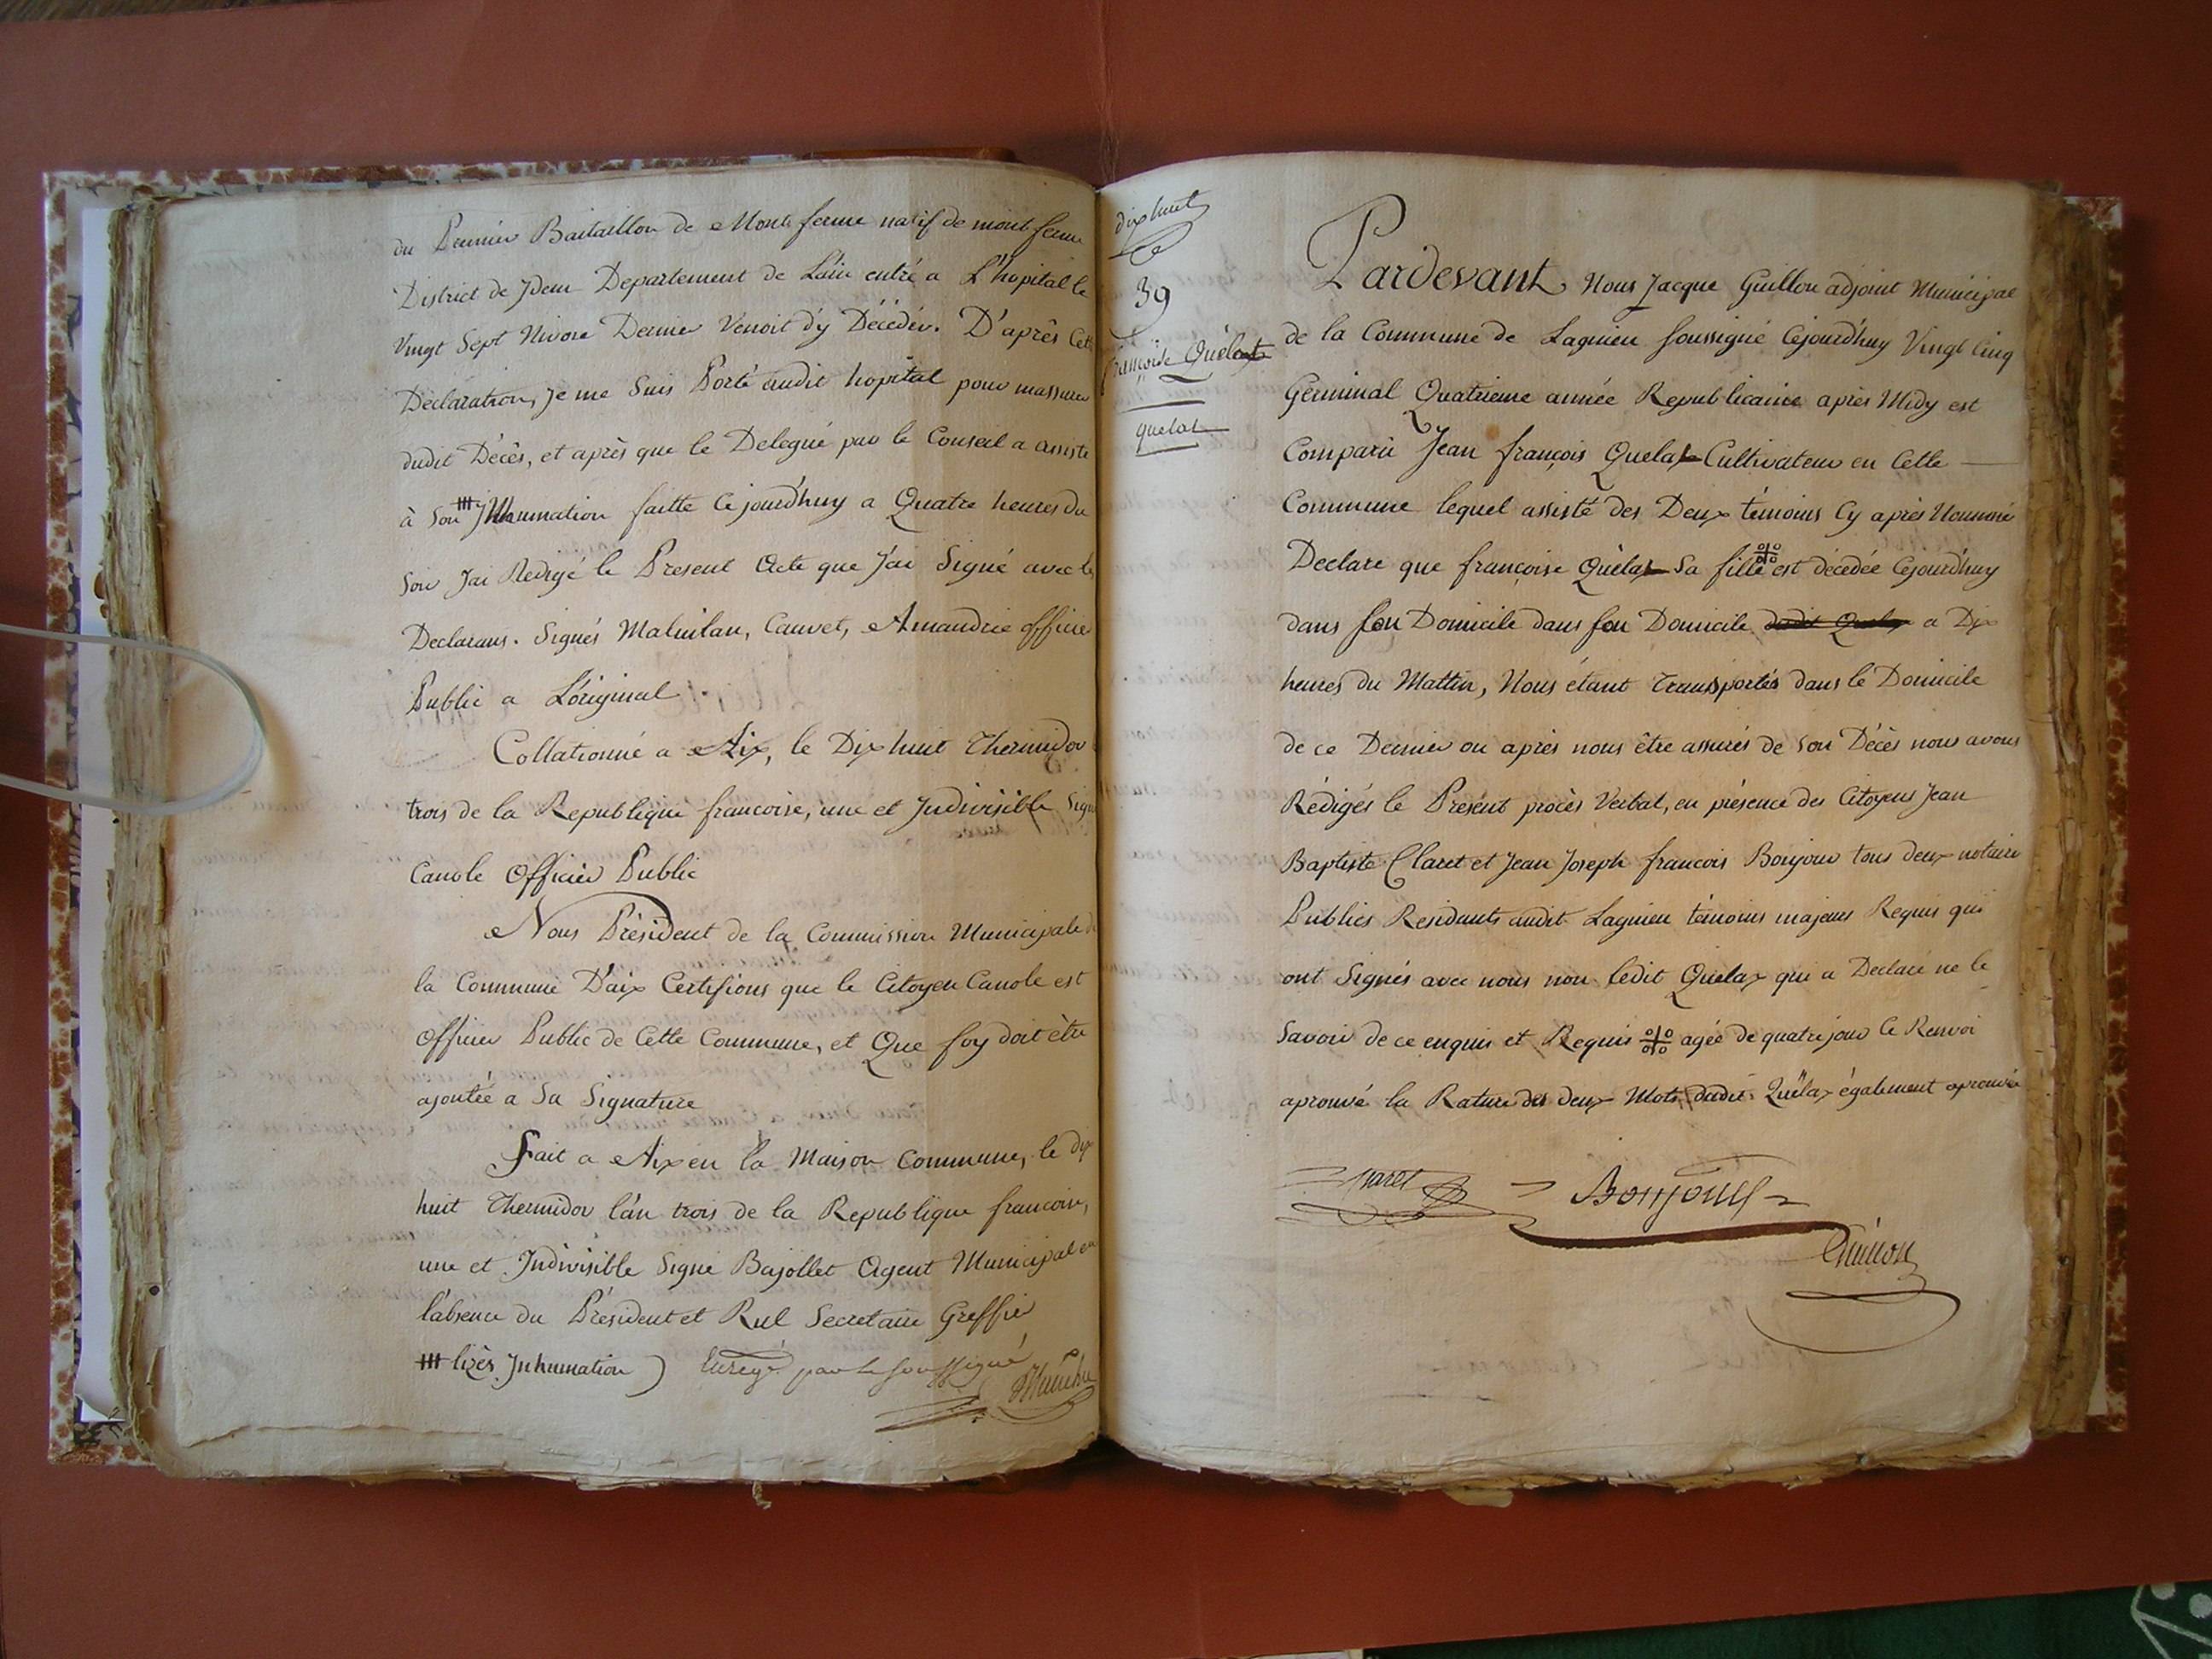 du Premier Bataillon de Mont ferme natif de mont ferme
District de Jdem Departement de L'ain entré a L'hopital le
Vingt Sept Nivose Dernier Venoit d'y Décédér. D'après Cette
Declaration, Je me Suis Porté audit hopital pour massurer
dudit Décès, et après que le Delegué par le Conseil a assisté
à Son Jnhumation faitte Cejourd'huy a Quatre heures du
Soir Jai Redigé le Present Acte que J'ai Signé avec les
Declarans. Signés Maluilan, Cauvet, Amandric officier
Public a L'original
Collationné a Aix, le Dix huit Thermidor
trois de la Republique francoise, une et Jndivisible Signé
Canole Officier Public
Nous Président de la Commission Municipale de
la Commune D'aix Certifions que le Citoyen Canole est
Officier Public de Cette Commune, et Que foy doit être
ajoutée a Sa Signature
Fait a Aix en la Maison Commune, le dix
huit Thermidor l'an trois de la Republique francoise,
une et Jndivisible Signé Bajollet Agent Municipal en
l'absence du Président et Rul Secretaire Greffier
lizés Jnhumation) Enregé par le soussigné
dix huit
39
françoise Quelat
quelat
Pardevant Nous Jacque Guillon adjoint Municipal
de la Commune de Lagnieu Soussigné Cejourd'huy Vingt Cinq
Germinal Quatrieme année Republicaine après Midy est
Comparu Jean françois Quelat Cultivateur en Cette
Commune lequel assisté des Deux témoins Cy après Nommé
Declare que françoise Quélat Sa fille est décédée Cejourd'huy
dans son Domicile dans son Domicile dudit Quelax a Dix
heures du Mattin, Nous étant Transportés dans le Domicile
de ce Dernier ou après nous être assurés de Son Décès nous avons
Rédigés le Présent procès Verbal, en présence des Citoyens Jean
Baptiste Claret et Jean Joseph francois Bonjour tous deux notaire
Publics Residants audit Lagnieu témoins majeurs Requis qui
ont Signés avec nous non ledit Quelax qui a Declaré ne le
Savoir de ce enquis et Requis agée de quatre jour le Renvoi
aprouvé la Rature des deux Mots dudit Quëlax également aprouvée
Claret Bonjour
Guillon